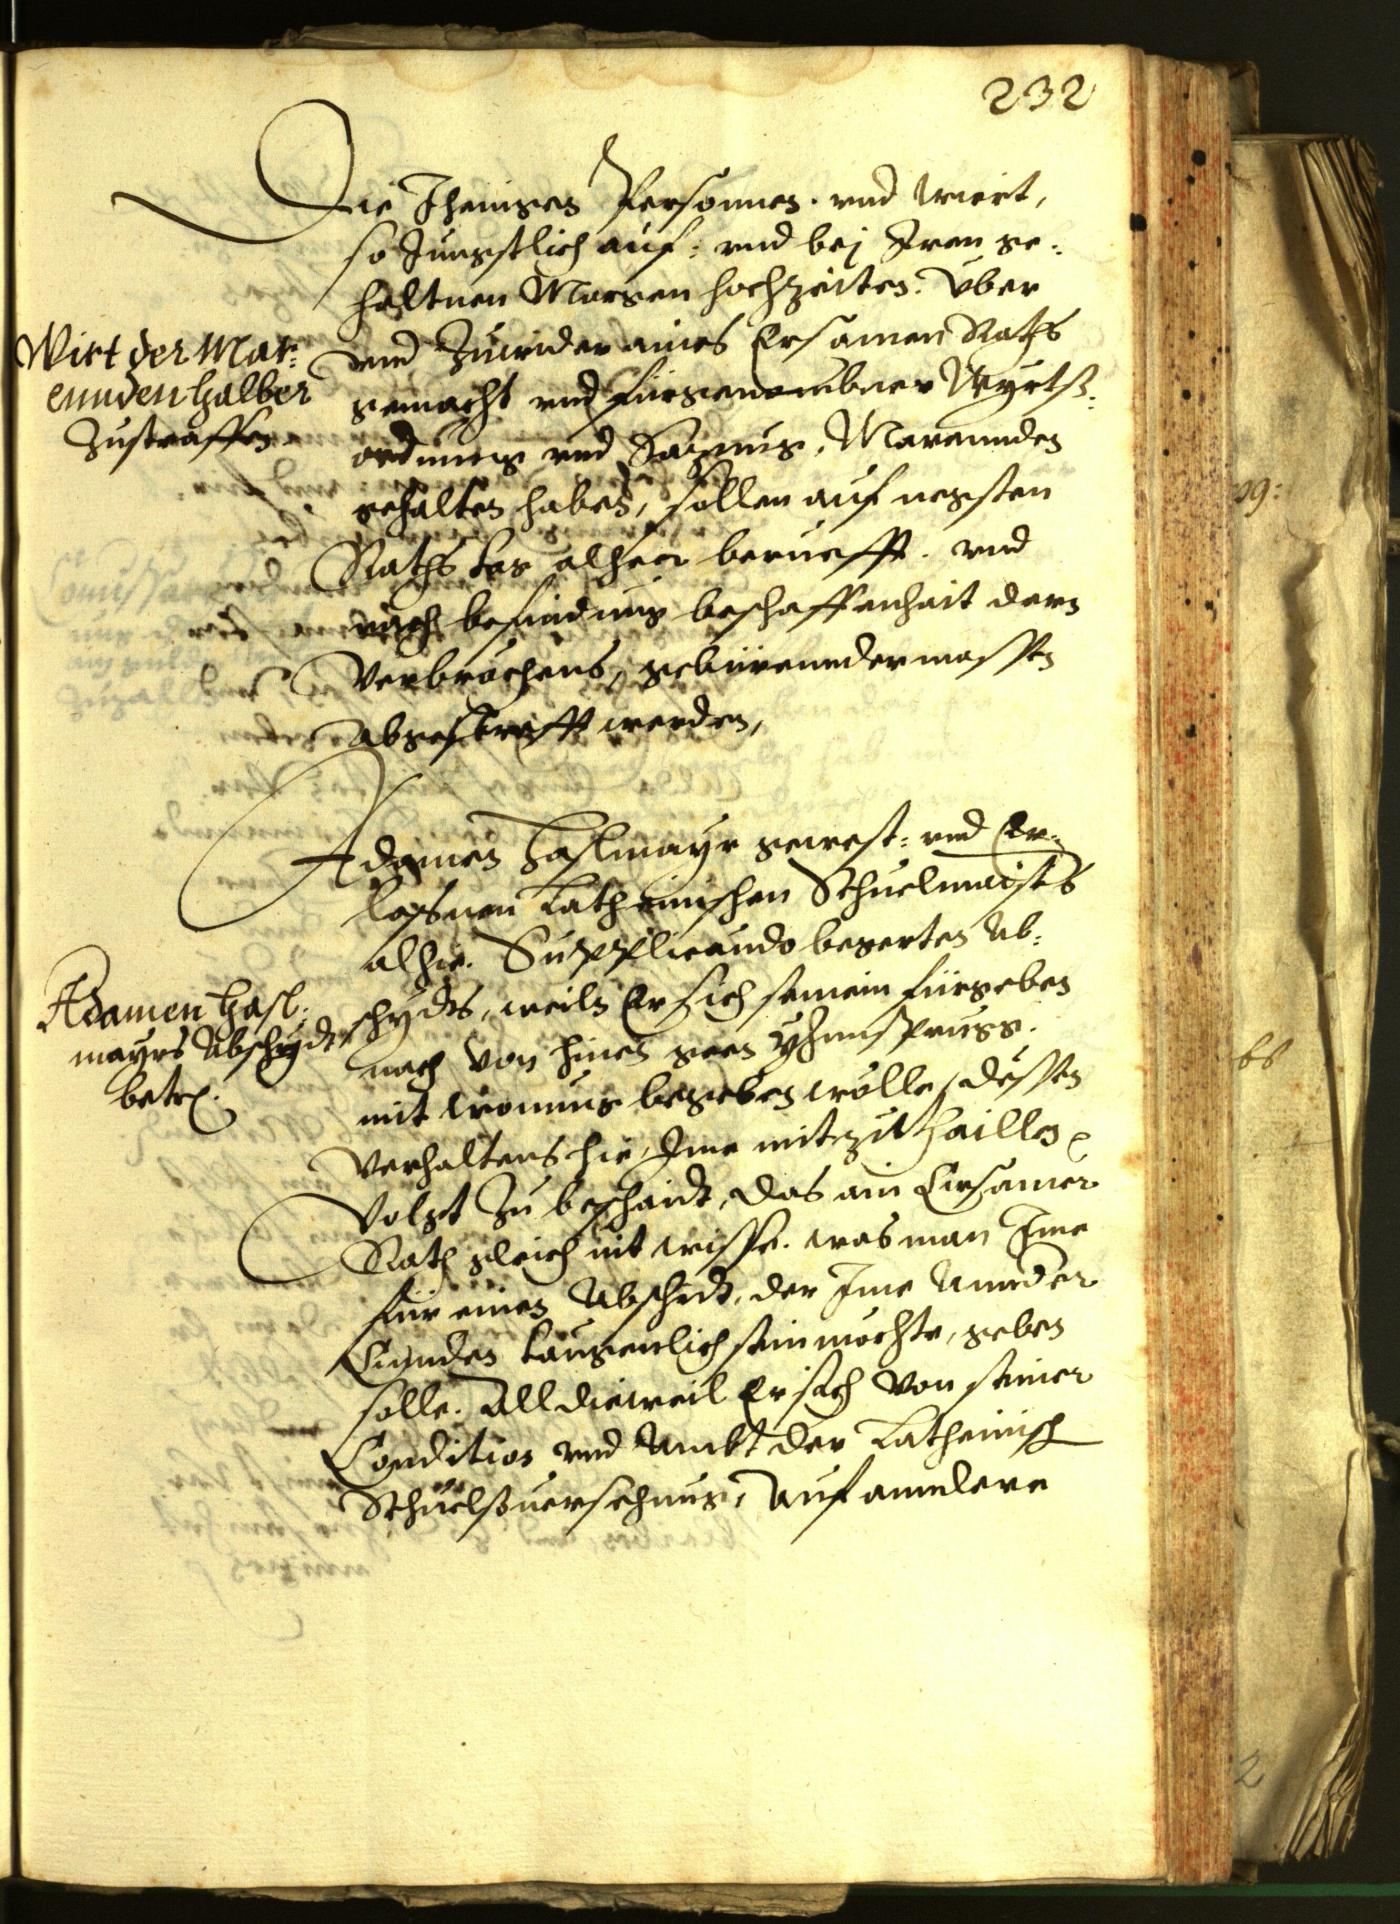 232
Die Jhenigen Personnen. vnd Wiert,
so Jüngstlich auf: vnd bej Jren ge:
haltnen Morgen hochzeiten. Vber
vnd Zuwider aines Ersamen Raths
gemacht vnd fürgenombner Wyrtß:
ordnung vnd Sazung, Marennden
gehalten haben, sollen auf negsten
Raths tag alheer beruefft. vnd
nach befindung beschaffenhait dern
Verbrochens, gebürenndermassen
abgestrafft werden,
Wirt der Mar:
ennden halber
Zustraffen
Adamen Haslmayr gewest: vnd Er:
lassnen Latheinischen Schuelmaisters
alhie. Supplicando begerten Ab:
schydts, weiln Er sich seinem fürgeben
nach von hinen geen Yhnnsprugg.
mit Wonung begeben wölle, dessen
Verhaltens hie, Jme mitzuthaillen
Volgt zu beschaidt, das ain Ersamer
Rath gleich nit wisse. was man Jme
für einen Abschidt, der Jme Annder
Ennden taugenlich sein möchte, geben
solle. Alldieweil Er sich von seiner
Condition vnd Ambt der Latheinisch
Schuelßuersehung, Auf anndere
Adamen Hasl:
mayrs Abschydt
betr.